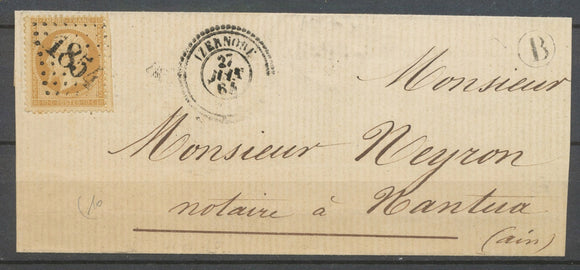 185
IZERNORE
27
JUIN
64
B
Monsieur
Monsieur Neyron
notaire à Nantua
(ain)
10